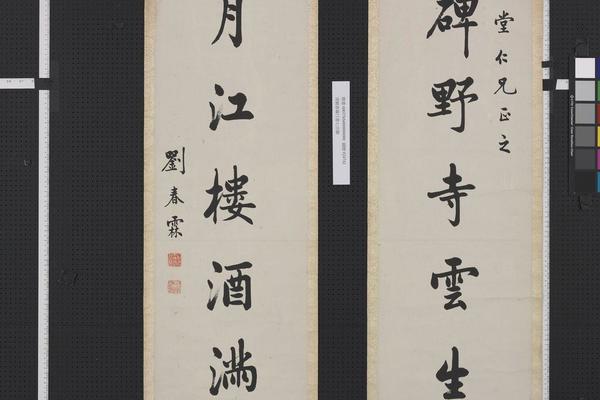 堂仁兄正之
碑野寺雲生
月江樓酒滿
劉春霖